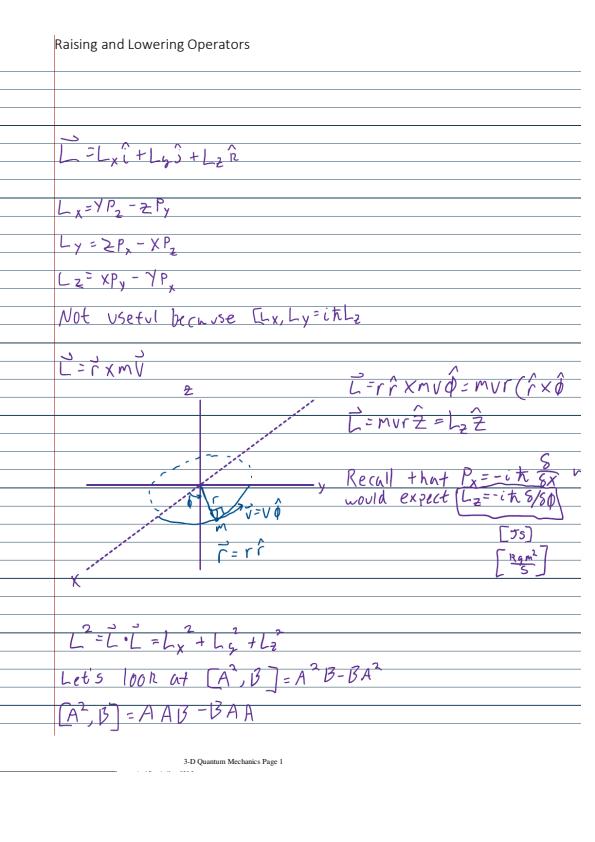 Raising and Lowering Operators
L⃗ = Lₓî + L_yĵ + L_z k̂
Lₓ = YP_z - zP_y
L_y = zPₓ - XP_z
L_z = XP_y - YPₓ
Not useful because [Lₓ, L_y = iħL_z
L⃗ = r⃗ x m v⃗
L⃗ = r r̂ x m v ϕ̂ = m v r (r̂ x ϕ̂
L⃗ = m v r ẑ = L_z ẑ
z
y
x
ϕ
r
m
v⃗ = v ϕ̂
r⃗ = r r̂
Recall that Pₓ = -iħ δ/δx
would expect L_z = -iħ δ/δϕ
[Js]
[kgm²/s]
L² = L⃗ · L⃗ = Lₓ² + L_y² + L_z²
Let's look at [A², B] = A²B - BA²
[A², B] = AAB - BAA
3-D Quantum Mechanics Page 1